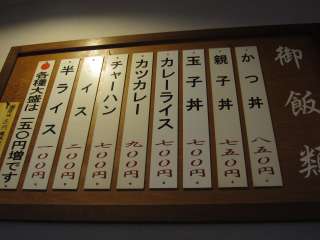 御飯類
かつ丼 八五〇円
親子丼 七五〇円
玉子丼 七〇〇円
カレーライス 七〇〇円
カツカレー 九〇〇円
チャーハン 七〇〇円
ライス 二〇〇円
半ライス 一〇〇円
●各種大盛は一五〇円増です